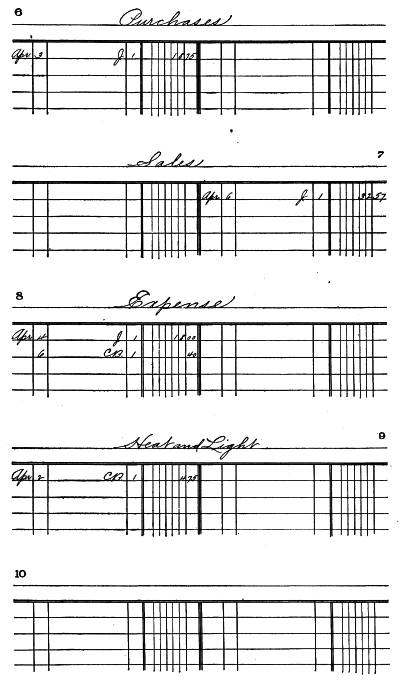 6
Purchases
Apr 3 J 1 18 75
Sales 7
Apr 6 J 1 32 57
8
Expense
Apr 4 J 1 18 00
6 CD 1 40
Heat and Light 9
Apr 2 CD 1 4 75
10